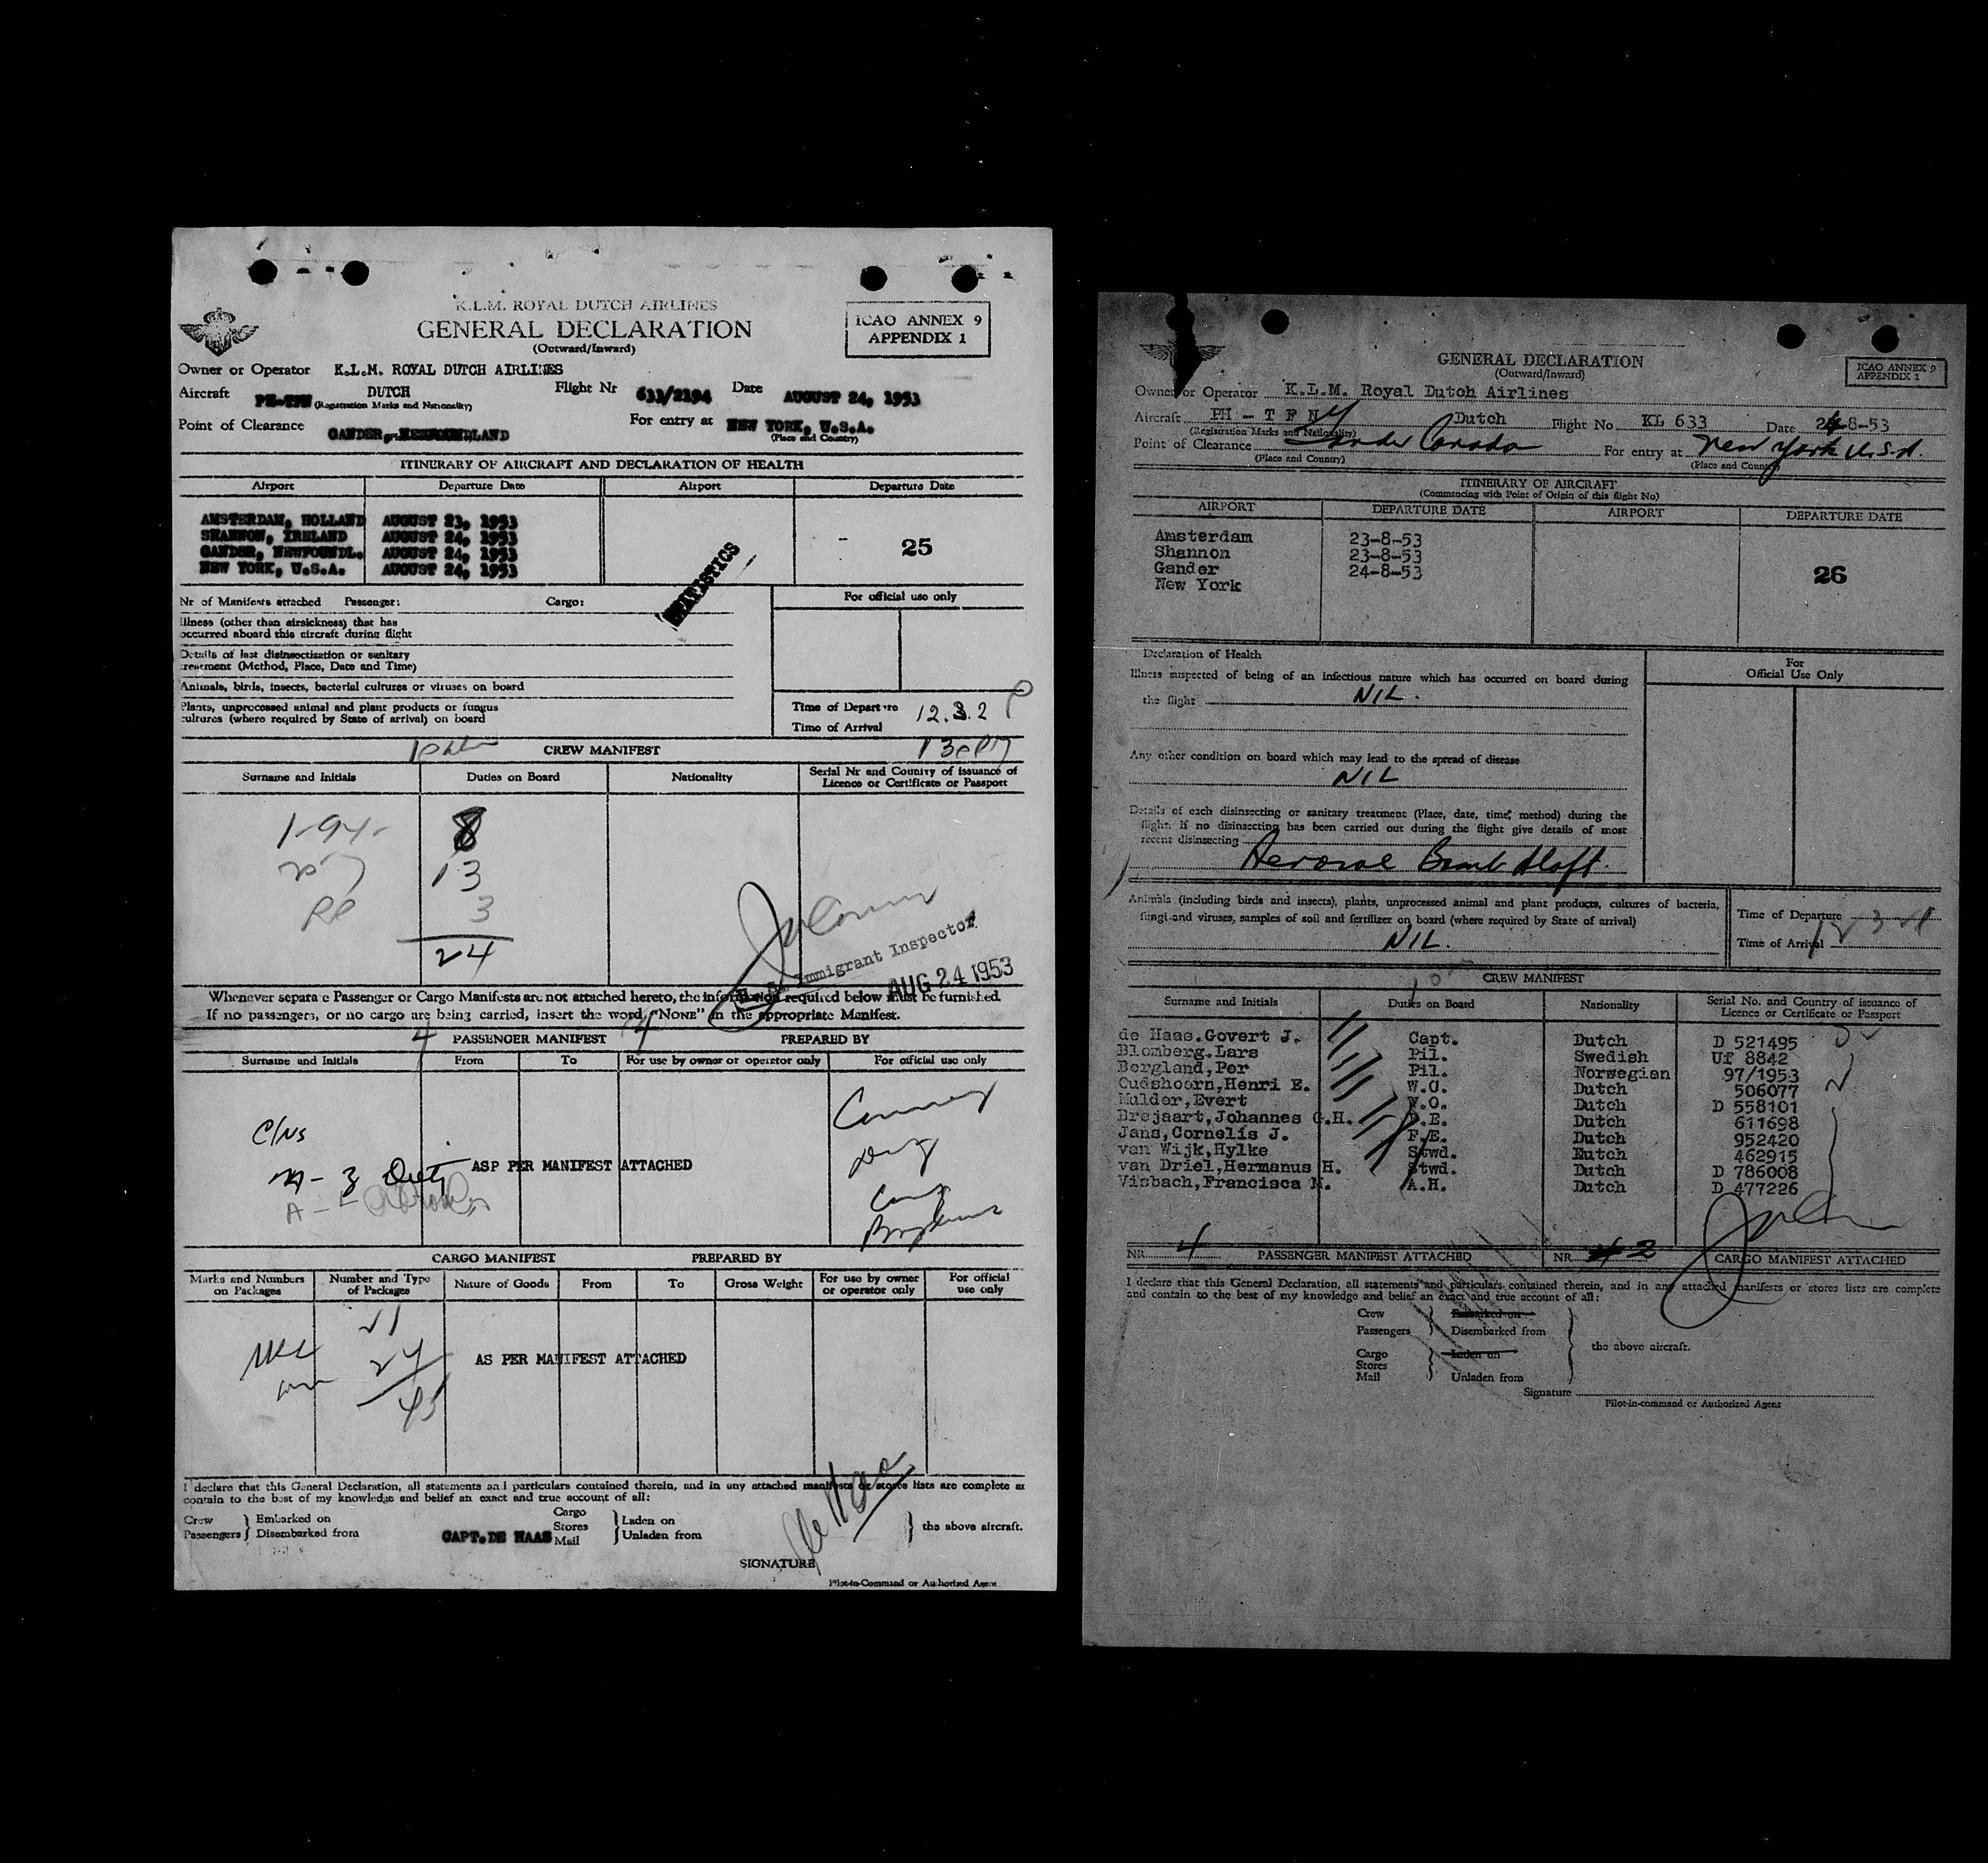 K.L.M. ROYAL DUTCH AIRLINES
GENERAL DECLARATION
(Outward/Inward)
ICAO ANNEX 9
APPENDIX 1
Owner or Operator K.L.M. ROYAL DUTCH AIRLINES
Aircraft PH-TFN DUTCH Flight Nr 633/2194 Date AUGUST 24, 1953
(Registration Marks and Nationality)
Point of Clearance GANDER, NEWFOUNDLAND For entry at NEW YORK, U.S.A.
(Place and Country)
ITINERARY OF AIRCRAFT AND DECLARATION OF HEALTH
Airport Departure Date Airport Departure Date
AMSTERDAM, HOLLAND AUGUST 23, 1953
SHANNON, IRELAND AUGUST 24, 1953
GANDER, NEWFOUNDL. AUGUST 24, 1953
NEW YORK, U.S.A. AUGUST 24, 1953
25
STATISTICS
Nr of Manifests attached Passenger: Cargo: For official use only
Illness (other than airsickness) that has
occurred aboard this aircraft during flight
Details of last disinsectization or sanitary
treatment (Method, Place, Date and Time)
Animals, birds, insects, bacterial cultures or viruses on board
Plants, unprocessed animal and plant products or fungus
cultures (where required by State of arrival) on board
Time of Departure 12.32
Time of Arrival
CREW MANIFEST
Surname and Initials Duties on Board Nationality Serial Nr and Country of issuance of
Licence or Certificate or Passport
1-94- 8
13
3
24
Immigrant Inspector
AUG 24 1953
Whenever separate Passenger or Cargo Manifests are not attached hereto, the information required below must be furnished.
If no passengers, or no cargo are being carried, insert the word "NONE" in the appropriate Manifest.
4 PASSENGER MANIFEST 4 PREPARED BY
Surname and Initials From To For use by owner or operator only For official use only
C/Ns
ASP PER MANIFEST ATTACHED
CARGO MANIFEST PREPARED BY
Marks and Numbers on Packages Number and Type of Packages Nature of Goods From To Gross Weight For use by owner or operator only For official use only
21
24
45
AS PER MANIFEST ATTACHED
I declare that this General Declaration, all statements and particulars contained therein, and in any attached manifests or stores lists are complete and
contain to the best of my knowledge and belief an exact and true account of all:
Crew Embarked on Cargo Laden on
Passengers Disembarked from CAPT. DE HAAS Stores Unladen from the above aircraft.
Mail
de Haas
SIGNATURE
Pilot-in-Command or Authorized Agent
GENERAL DECLARATION
(Outward/Inward)
ICAO ANNEX 9
APPENDIX 1
Owner or Operator K.L.M. Royal Dutch Airlines
Aircraft PH - T F N Dutch Flight No. KL 633 Date 24-8-53
(Registration Marks and Nationality)
Point of Clearance Gander Canada For entry at New York U.S.A.
(Place and Country) (Place and Country)
ITINERARY OF AIRCRAFT
(Commencing with Point of Origin of this flight No)
AIRPORT DEPARTURE DATE AIRPORT DEPARTURE DATE
Amsterdam 23-8-53
Shannon 23-8-53
Gander 24-8-53
New York
26
Declaration of Health
For
Official Use Only
Illness suspected of being of an infectious nature which has occurred on board during
the flight NIL.
Any other condition on board which may lead to the spread of disease
NIL
Details of each disinsecting or sanitary treatment (Place, date, time, method) during the
flight. If no disinsecting has been carried out during the flight give details of most
recent disinsecting
Aerosol Bomb Aloft.
Animals (including birds and insects), plants, unprocessed animal and plant products, cultures of bacteria,
fungi and viruses, samples of soil and fertilizer on board (where required by State of arrival)
NIL.
Time of Departure
Time of Arrival
CREW MANIFEST
Surname and Initials Duties on Board Nationality Serial No. and Country of issuance of
Licence or Certificate or Passport
de Haas.Govert J. Capt. Dutch D 521495
Blomberg.Lars Pil. Swedish Uf 8842
Bergland,Per Pil. Norwegian 97/1953
Oudshoorn,Henri E. W.O. Dutch 506077
Mulder,Evert W.O. Dutch D 558101
Brejaart,Johannes G.H. F.E. Dutch 611698
Jans,Cornelis J. F.E. Dutch 952420
van Wijk,Hylke Stwd. Eutch 462915
van Driel,Hermanus H. Stwd. Dutch D 786008
Visbach,Francisca N. A.H. Dutch D 477226
NR 4 PASSENGER MANIFEST ATTACHED NR 2 CARGO MANIFEST ATTACHED
I declare that this General Declaration, all statements and particulars contained therein, and in any attached manifests or stores lists are complete
and contain to the best of my knowledge and belief an exact and true account of all:
Crew Embarked on
Passengers Disembarked from
the above aircraft.
Cargo Laden on
Stores
Mail Unladen from
Signature
Pilot-in-command or Authorized Agent